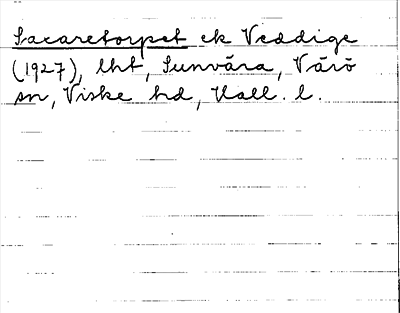 Saxaretorpet ek Veddige
(1927), lht, Sunvära, Värö
sn, Viske hd, Hall. l.